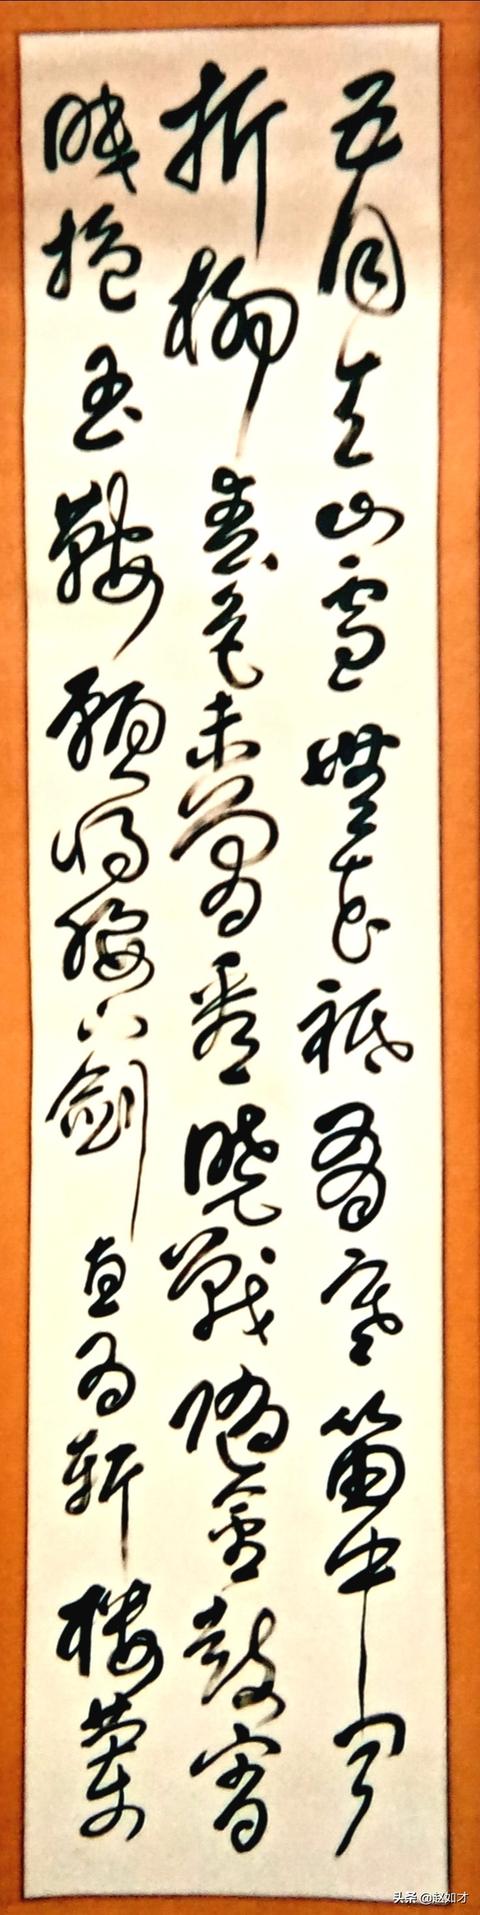 五月天山雪無花祗有寒笛中聞
折柳春色未曾看曉戰隨金鼓宵
眠抱玉鞍願將腰下劍直為斬樓蘭
头条 @赵如才